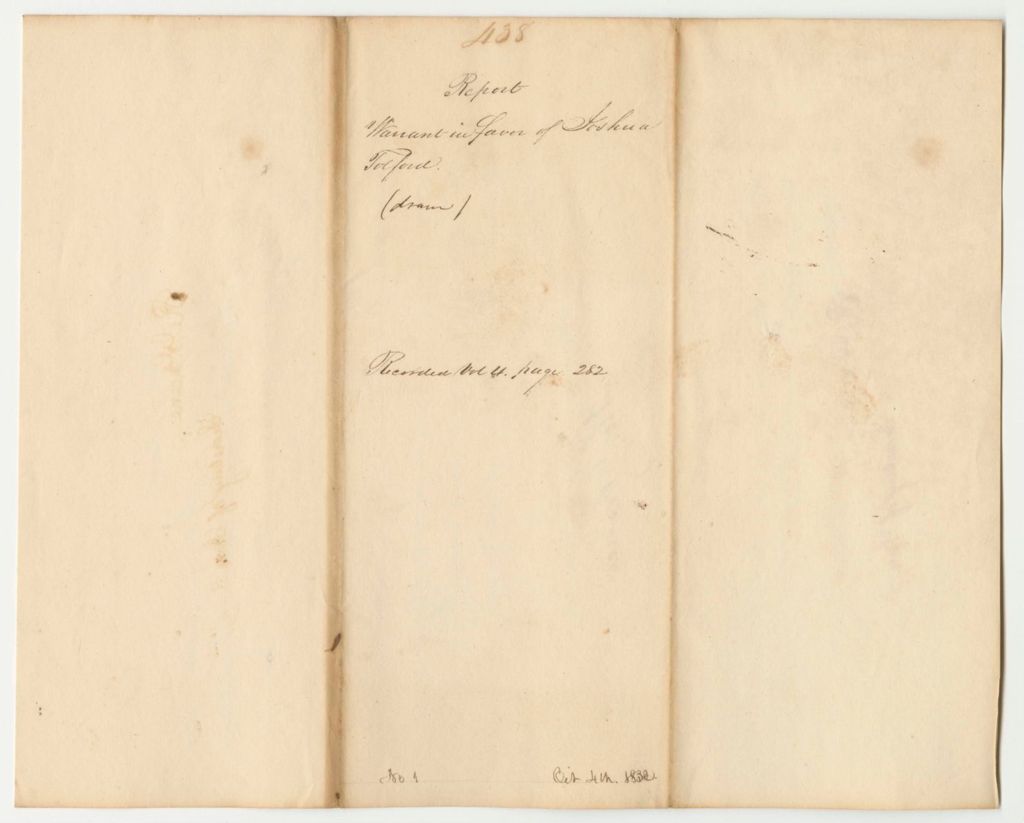 438
Report
Warrant in favor of Joshua
Tolford.
(drawn)
Recorded Vol 4. page 282
No 1
Oct 4th. 1832